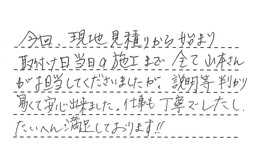 今回、現地見積りから始まり
取付け日当日の施工まで全て山本さん
がお担当してくださいましたが、説明等判か
り易くて安心出来ました。仕事も丁寧でしたし、
たいへん満足しております!!